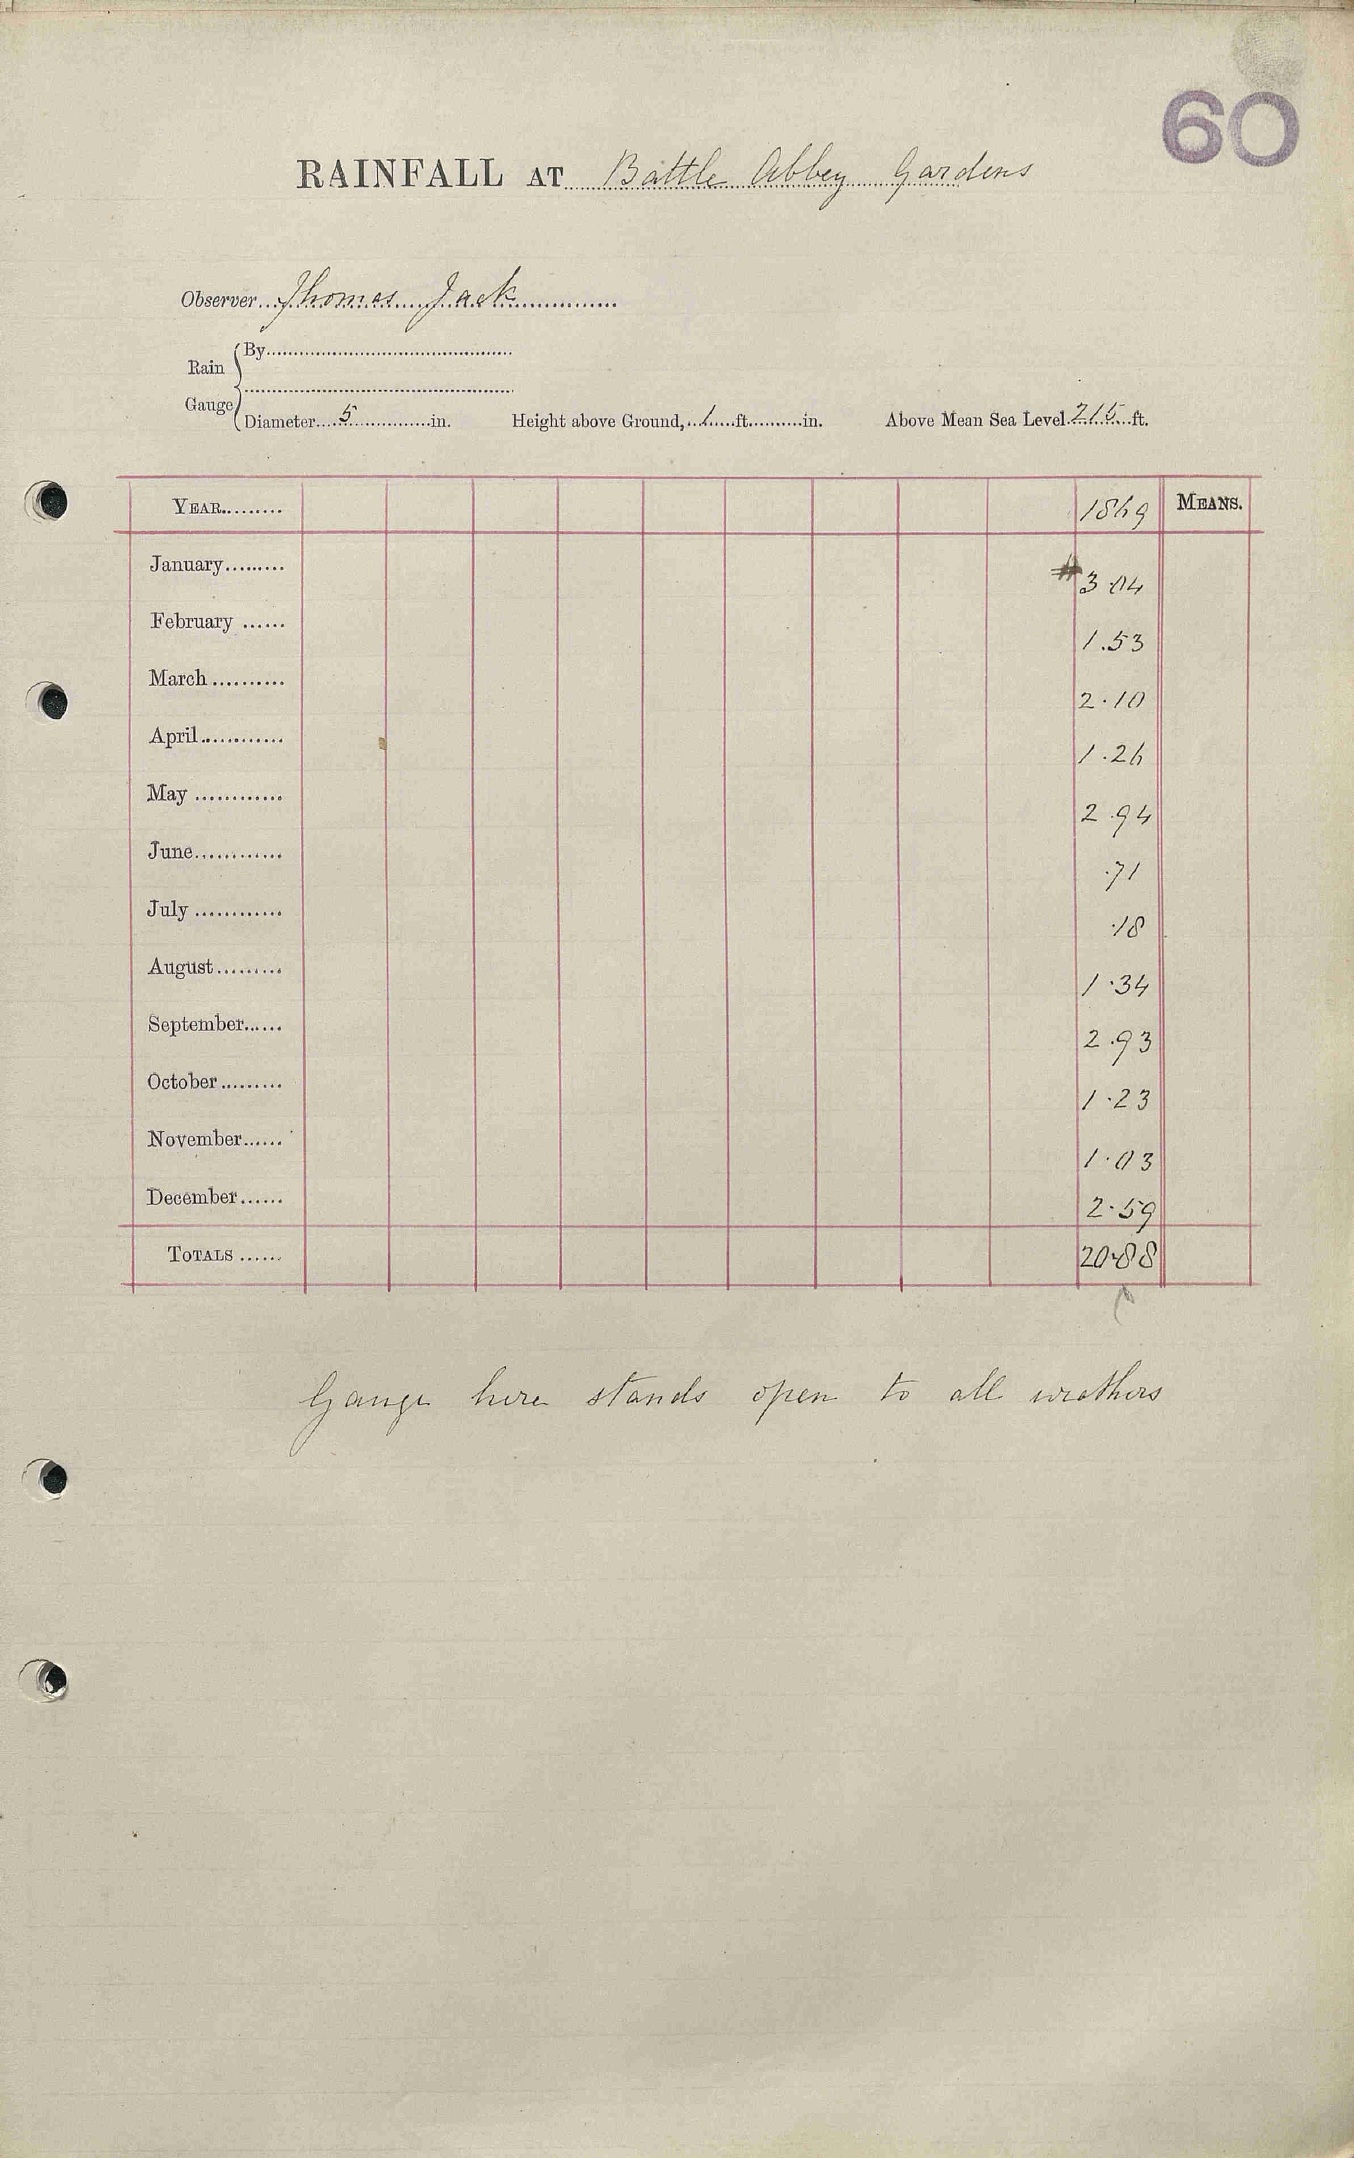 60
RAINFALL AT Battle Abbey Gardens
Observer Thomas Jack
Rain Gauge
By
Diameter 5 in. Height above Ground, 1 ft. in. Above Mean Sea Level 215 ft.
YEAR 1869 MEANS.
January # 3.04
February 1.53
March 2.10
April 1.26
May 2.94
June .71
July .18
August 1.34
September 2.93
October 1.23
November 1.03
December 2.59
TOTALS 20.88
Gauge here stands open to all weathers